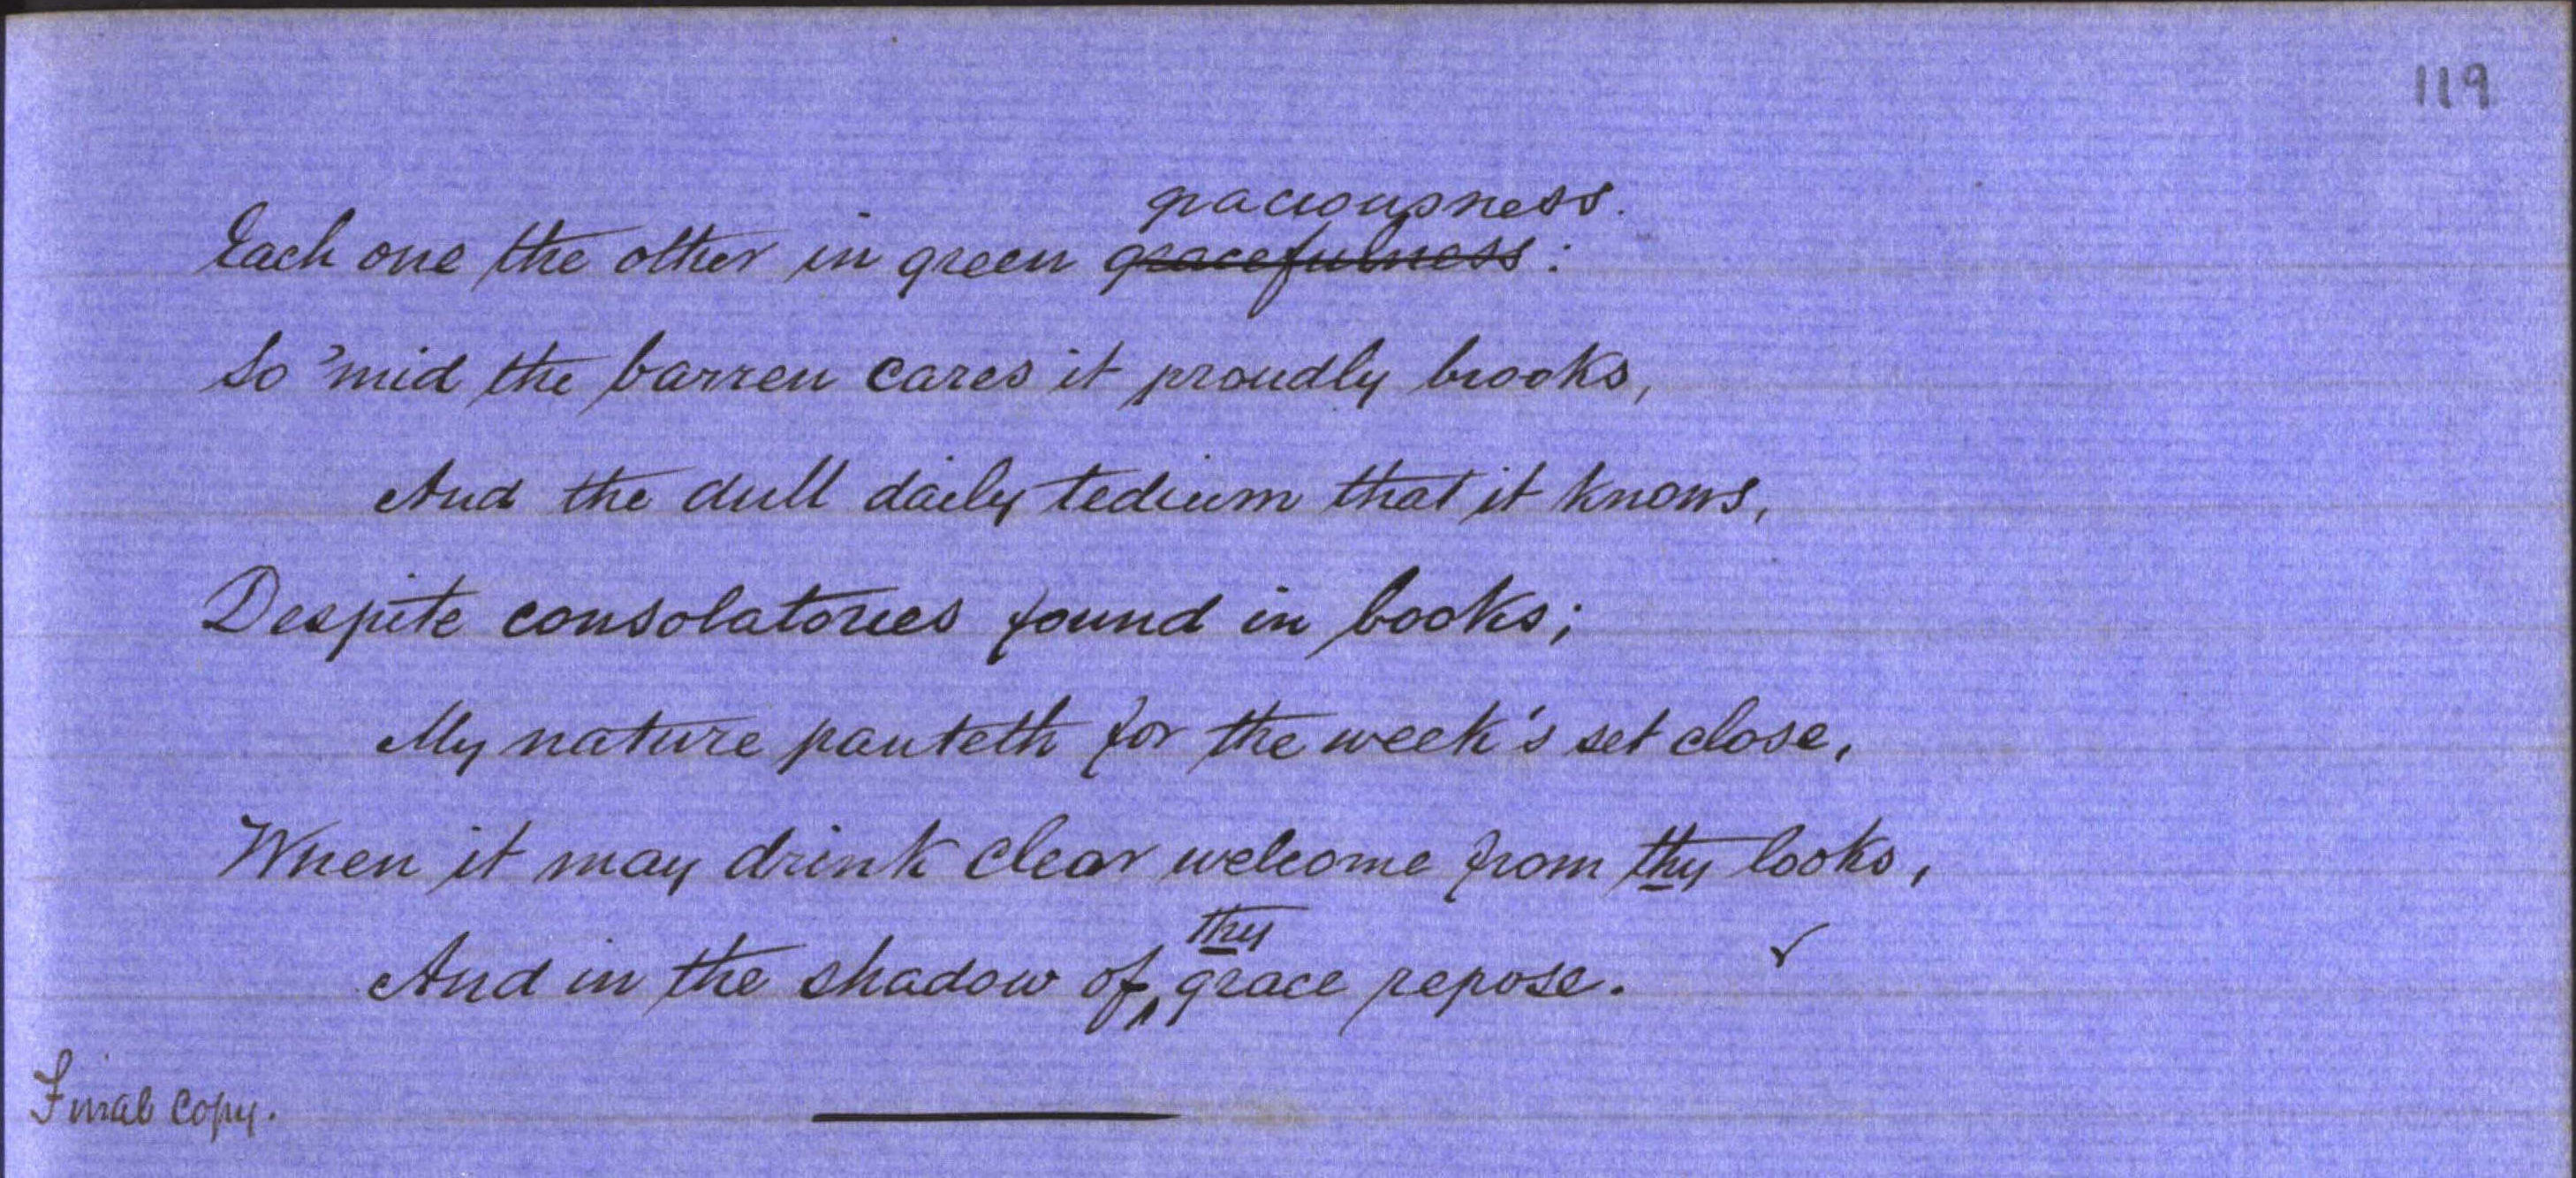 119
graciousness.
Each one the other in green gracefulness:
So 'mid the barren cares it proudly brooks,
And the dull daily tedium that it knows,
Despite consolatories found in books;
My nature panteth for the week's set close,
When it may drink clear welcome from thy looks,
thy
And in the shadow of grace repose.
Final copy.